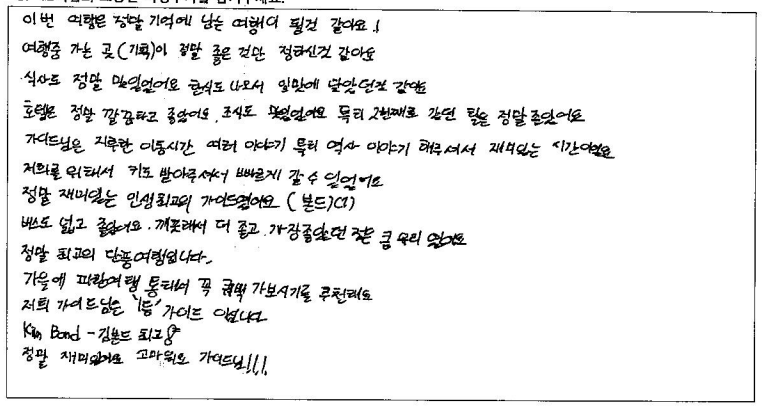 이번 여행은 정말 기억에 남는 여행이 될것 같아요!
여행중 가는 곳(기획)이 정말 좋은 것만 정하신것 같아요
식사도 정말 맛있었어요 한식도 나와서 입맛에 맞았던것 같아요
호텔은 정말 깔끔하고 좋았어요. 조식도 맛있었어요 특히 2번째로 갔던 텔은 정말 좋았어요
가이드님은 지루한 이동시간 여러 이야기 특히 역사 이야기 해주셔서 재미있는 시간이었어요
저희를 위해서 키도 받아주셔서 빠르게 갈 수 있었어요
정말 재미있는 인생최고의 가이드였어요 (본드)
버스도 넓고 좋았어요. 깨끗해서 더 좋고 가장좋았던 점은 큼 유리 였어요
정말 최고의 단풍여행입니다.
가을에 파랑여행 통해서 꼭 가보시기를 추천해요
저희 가이드님은 '1등' 가이드 입니다
Kim Bond - 김본드 최고
정말 재미있어요 고마워요 가이드님!!!